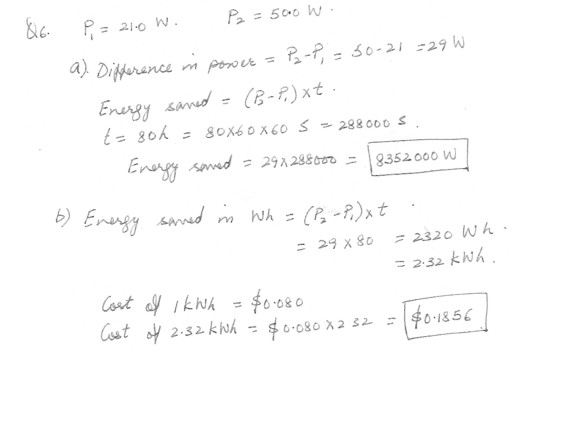 Q6. P₁ = 21.0 W. P₂ = 50.0 W.
a). Difference in power = P₂-P₁ = 50-21 = 29 W
Energy saved = (P₂-P₁) x t.
t = 80h = 80x60x60 S = 288000 S.
Energy saved = 29x288000 = 8352000 W
b) Energy saved in Wh = (P₂-P₁) x t
= 29 x 80 = 2320 Wh.
= 2.32 kWh.
Cost of 1kWh = $0.080
Cost of 2.32 kWh = $0.080 x 2.32 = $0.1856